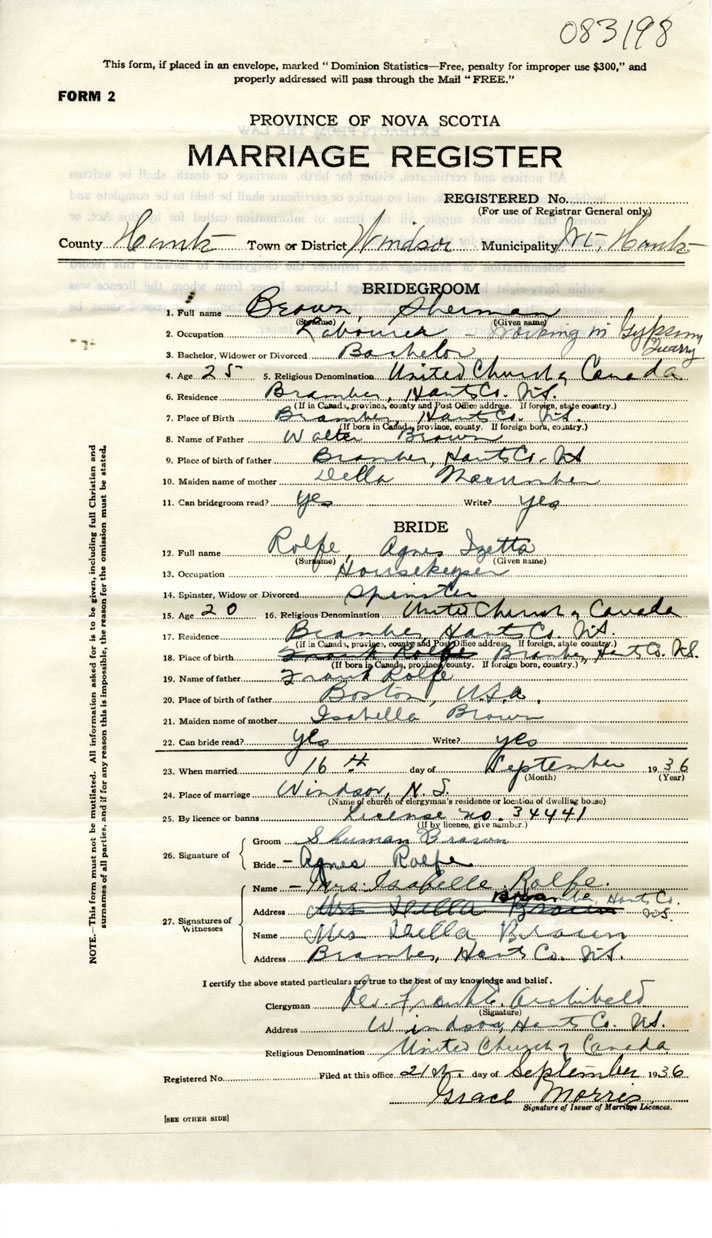 083198
This form, if placed in an envelope, marked “Dominion Statistics—Free, penalty for improper use $300,” and
properly addressed will pass through the Mail “FREE.”
FORM 2
PROVINCE OF NOVA SCOTIA
MARRIAGE REGISTER
REGISTERED No.
(For use of Registrar General only)
County Hants Town or District Windsor Municipality W. Hants
BRIDEGROOM
1. Full name Brown, Sherman
(Surname) (Given name)
2. Occupation Labourer - Working in Gypsum Quarry
3. Bachelor, Widower or Divorced Bachelor
4. Age 25 5. Religious Denomination United Church of Canada
6. Residence Bramber, Hants Co. N.S.
(If in Canada, province, county and Post Office address. If foreign, state country.)
7. Place of Birth Bramber, Hants Co. N.S.
(If born in Canada, province, county. If foreign born, country.)
8. Name of Father Walter Brown
9. Place of birth of father Bramber, Hants Co. N.S
10. Maiden name of mother Della Macumber
11. Can bridegroom read? yes Write? yes
BRIDE
12. Full name Rolfe, Agnes Izetta
(Surname) (Given name)
13. Occupation Housekeeper
14. Spinster, Widow or Divorced Spinster
15. Age 20 16. Religious Denomination United Church of Canada
17. Residence Bramber, Hants Co. N.S.
(If in Canada, province, county and Post Office address. If foreign, state country.)
18. Place of birth Frank Rolfe Bramber, Hants Co. N.S.
(If born in Canada, province, county. If foreign born, country.)
19. Name of father Frank Rolfe
20. Place of birth of father Boston, U.S.A.
21. Maiden name of mother Isabella Brown
22. Can bride read? yes Write? yes
23. When married 16th day of September 1936
(Month) (Year)
24. Place of marriage Windsor, N.S.
(Name of church of clergyman's residence or location of dwelling house)
25. By licence or banns License no. 34441
(If by licence, give number.)
26. Signature of Groom Sherman Brown
Bride - Agnes Rolfe
27. Signatures of Witnesses
Name - Mrs. Isabelle Rolfe.
Address Mrs Della Brown Bramber, Hants Co. N.S.
Name Mrs Della Brown
Address Bramber, Hants Co. N.S.
I certify the above stated particulars are true to the best of my knowledge and belief.
Clergyman Rev. Frank E. Archibald
(Signature)
Address Windsor, Hants Co. N.S.
Religious Denomination United Church of Canada
Registered No. Filed at this office 21st. day of September 1936
Grace Morris
Signature of Issuer of Marriage Licences.
[SEE OTHER SIDE]
NOTE.—This form must not be mutilated. All information asked for is to be given, including full Christian and
surnames of all parties, and if for any reason this is impossible, the reason for the omission must be stated.